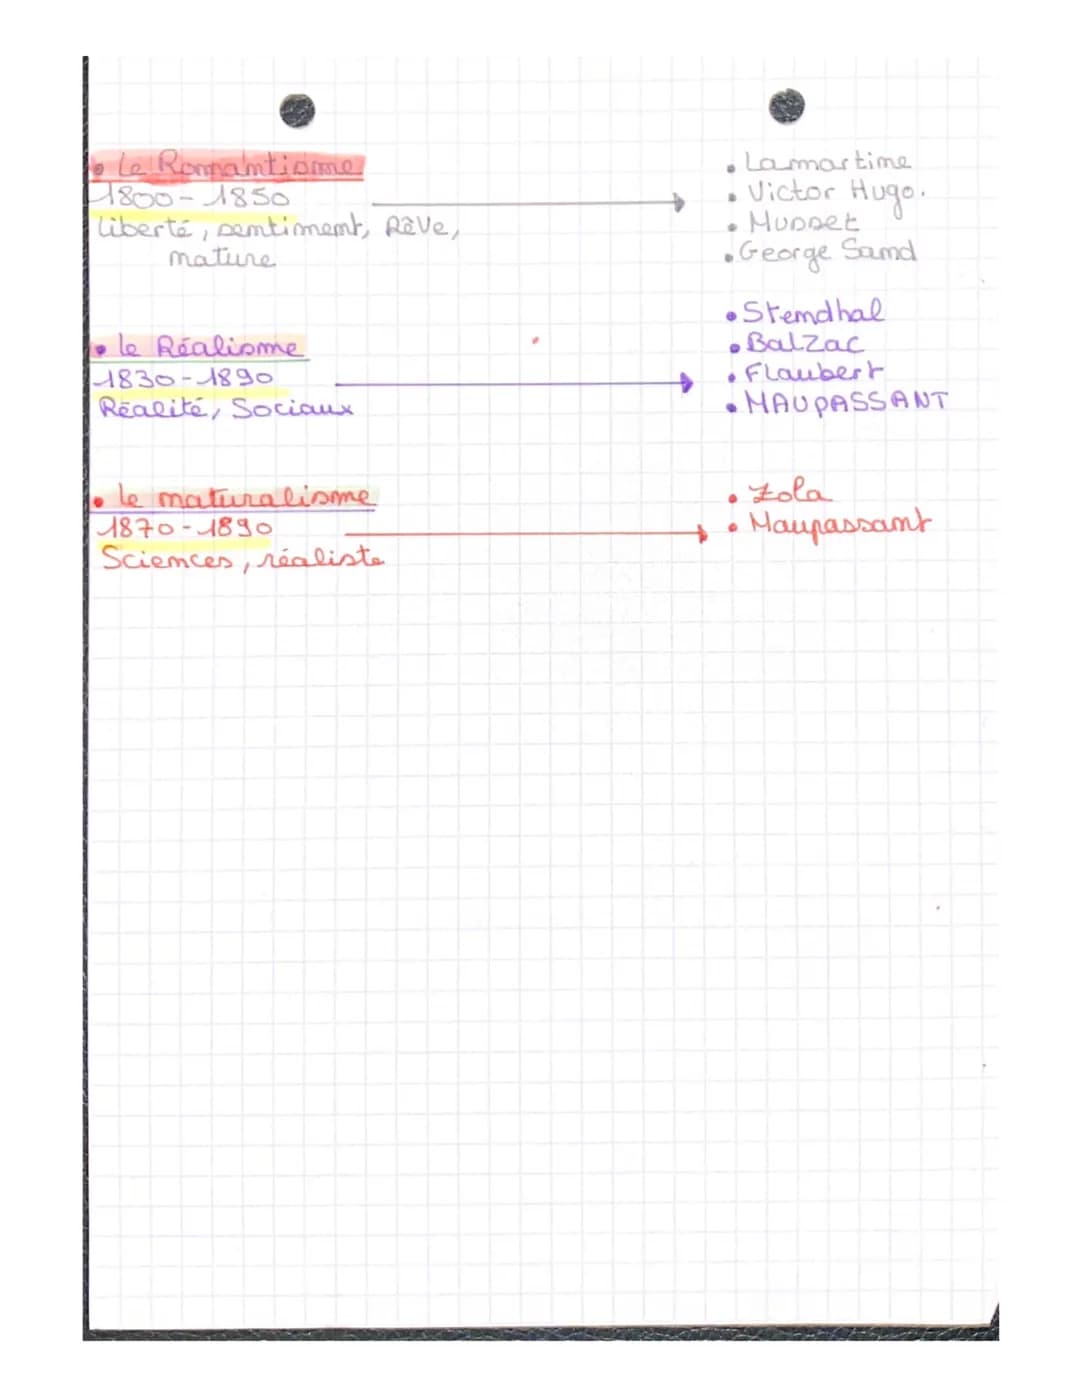 • Le Romantisme
1800 - 1850
Liberté, sentiment, Rêve,
nature
• Lamartine
• Victor Hugo.
• Musset
• George Sand
• le Réalisme
1830 - 1890
Réalité, Sociaux
• Stendhal
• Balzac
• Flaubert
• MAUPASSANT
• le naturalisme
1870 - 1890
Sciences, réaliste
• Zola
• Maupassant